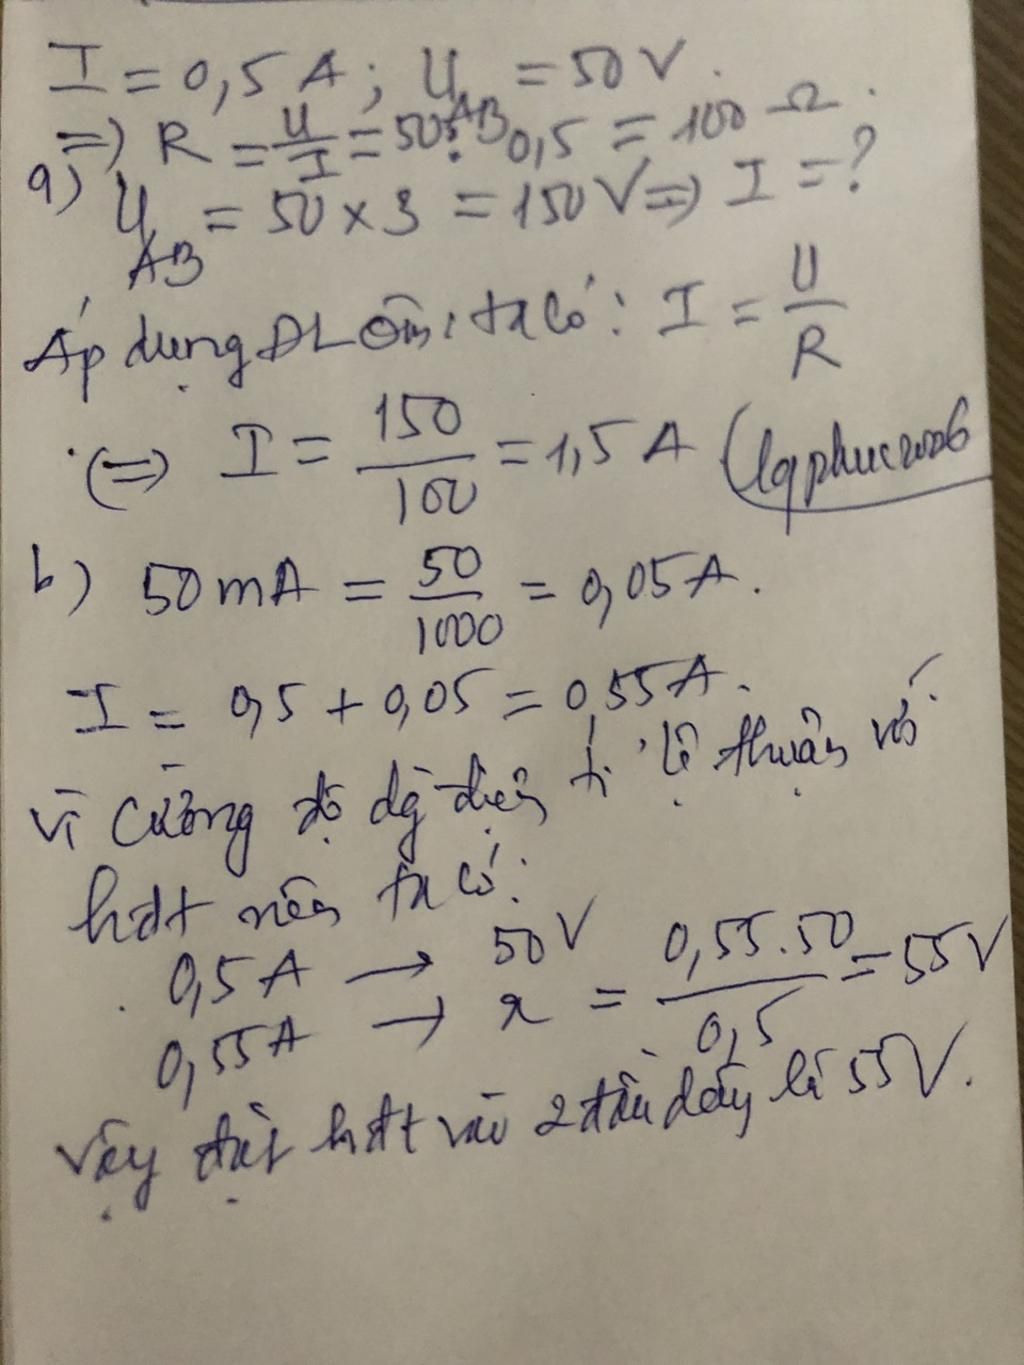 I = 0,5 A ; U AB = 50 V.
=> R = U/I = 50 : 0,5 = 100 Ω.
a) U AB = 50 x 3 = 150 V => I = ?
Áp dụng ĐL ôm, ta có: I = U/R
(=> I = 150/100 = 1,5 A (lqphuc2006
b) 50 mA = 50/1000 = 0,05 A.
I = 0,5 + 0,05 = 0,55 A.
Vì cường độ dg điện tỉ lệ thuận với
hđt nên ta có:
0,5 A → 50 V
0,55 A → x = 0,55.50/0,5 = 55 V
Vậy đặt hđt vào 2 đầu dây là 55 V.